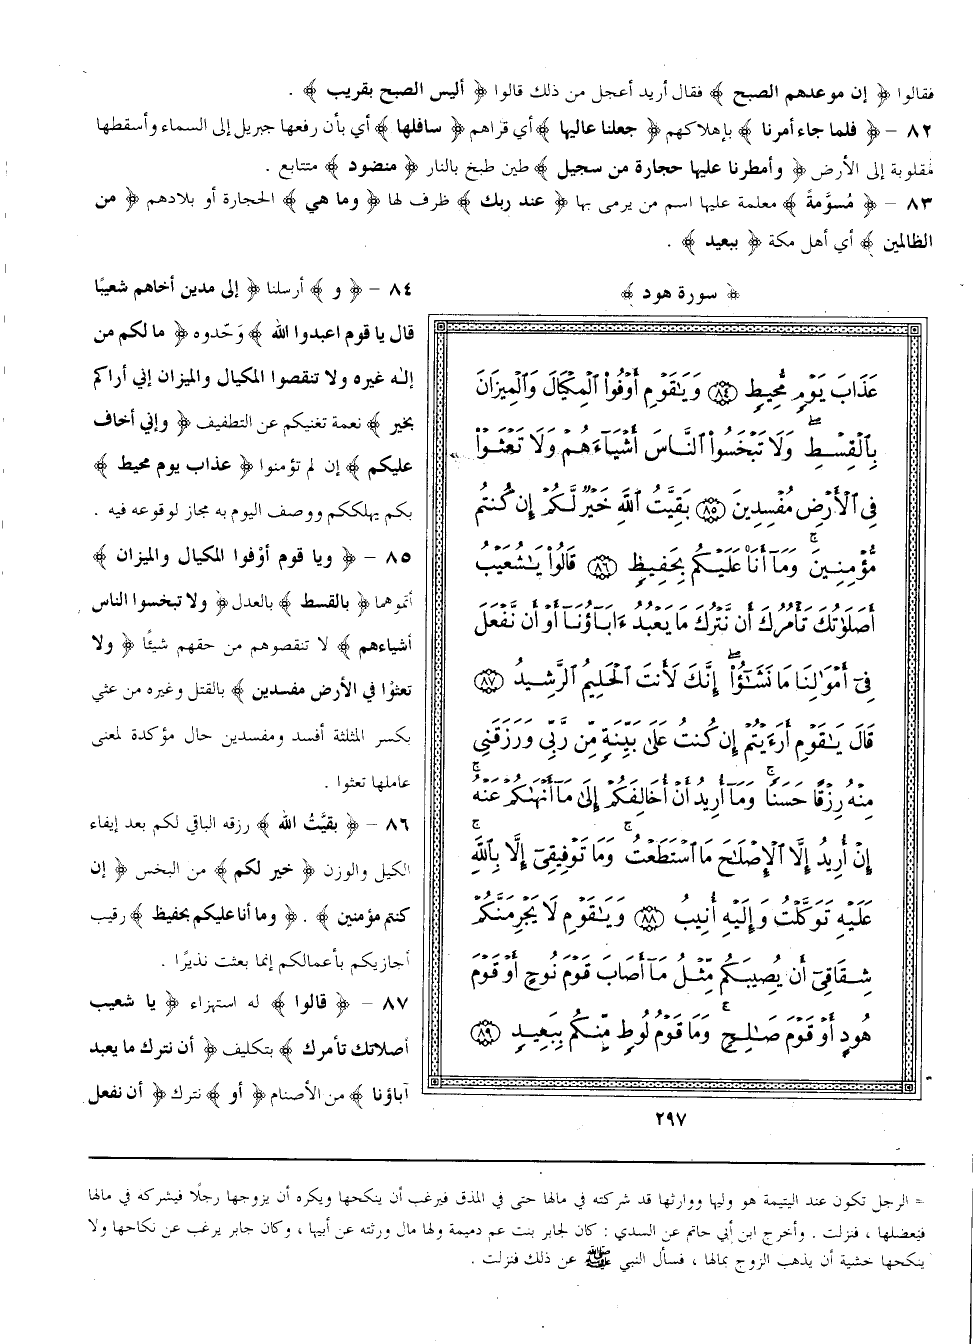 فقالوا ﴿ إن موعدهم الصبح ﴾ فقال أريد أعجل من ذلك قالوا ﴿ أليس الصبح بقريب ﴾ .
٨٢ – ﴿ فلما جاء أمرنا ﴾ بإهلاكهم ﴿ جعلنا عاليها ﴾ أي قراهم ﴿ سافلها ﴾ أي بأن رفعها جبريل إلى السماء وأسقطها
مقلوبة إلى الأرض ﴿ وأمطرنا عليها حجارة من سجيل ﴾ طين طبخ بالنار ﴿ منضود ﴾ متتابع .
٨٣ – ﴿ مُسوَّمةً ﴾ معلمة عليها اسم من يرمى بها ﴿ عند ربك ﴾ ظرف لها ﴿ وما هي ﴾ الحجارة أو بلادهم ﴿ من
الظالمين ﴾ أي أهل مكة ﴿ ببعيد ﴾ .
﴿ سورة هود ﴾
عَذَابَ يَوْمٍ مُّحِيطٍ ٨٤ وَيَٰقَوْمِ أَوْفُوا۟ ٱلْمِكْيَالَ وَٱلْمِيزَانَ
بِٱلْقِسْطِ ۖ وَلَا تَبْخَسُوا۟ ٱلنَّاسَ أَشْيَآءَهُمْ وَلَا تَعْثَوْا۟
فِى ٱلْأَرْضِ مُفْسِدِينَ ٨٥ بَقِيَّتُ ٱللَّهِ خَيْرٌ لَّكُمْ إِن كُنتُم
مُّؤْمِنِينَ ۚ وَمَآ أَنَا۠ عَلَيْكُم بِحَفِيظٍ ٨٦ قَالُوا۟ يَٰشُعَيْبُ
أَصَلَوٰتُكَ تَأْمُرُكَ أَن نَّتْرُكَ مَا يَعْبُدُ ءَابَآؤُنَآ أَوْ أَن نَّفْعَلَ
فِىٓ أَمْوَٰلِنَا مَا نَشَٰٓؤُا۟ ۖ إِنَّكَ لَأَنتَ ٱلْحَلِيمُ ٱلرَّشِيدُ ٨٧
قَالَ يَٰقَوْمِ أَرَءَيْتُمْ إِن كُنتُ عَلَىٰ بَيِّنَةٍ مِّن رَّبِّى وَرَزَقَنِى
مِنْهُ رِزْقًا حَسَنًا ۚ وَمَآ أُرِيدُ أَنْ أُخَالِفَكُمْ إِلَىٰ مَآ أَنْهَىٰكُمْ عَنْهُ ۚ
إِنْ أُرِيدُ إِلَّا ٱلْإِصْلَٰحَ مَا ٱسْتَطَعْتُ ۚ وَمَا تَوْفِيقِىٓ إِلَّا بِٱللَّهِ ۚ
عَلَيْهِ تَوَكَّلْتُ وَإِلَيْهِ أُنِيبُ ٨٨ وَيَٰقَوْمِ لَا يَجْرِمَنَّكُمْ
شِقَاقِىٓ أَن يُصِيبَكُم مِّثْلُ مَآ أَصَابَ قَوْمَ نُوحٍ أَوْ قَوْمَ
هُودٍ أَوْ قَوْمَ صَٰلِحٍ ۚ وَمَا قَوْمُ لُوطٍ مِّنكُم بِبَعِيدٍ ٨٩
٢٩٧
٨٤ – ﴿ و ﴾ أرسلنا ﴿ إلى مدين أخاهم شعيبًا
قال يا قوم اعبدوا الله ﴾ وَحّدوه ﴿ ما لكم من
إلـه غيره ولا تنقصوا المكيال والميزان إني أراكم
بخير ﴾ نعمة تغنيكم عن التطفيف ﴿ وإني أخاف
عليكم ﴾ إن لم تؤمنوا ﴿ عذاب يوم محيط ﴾
بكم يهلككم ووصف اليوم به مجاز لوقوعه فيه .
٨٥ – ﴿ ويا قوم أوْفوا المكيال والميزان ﴾
أتموهما ﴿ بالقسط ﴾ بالعدل ﴿ ولا تبخسوا الناس
أشياءهم ﴾ لا تنقصوهم من حقهم شيئًا ﴿ ولا
تعثوْا في الأرض مفسدين ﴾ بالقتل وغيره من عثي
بكسر المثلثة أفسد ومفسدين حال مؤكدة لمعنى
عاملها تعثوا .
٨٦ – ﴿ بقيَّتُ الله ﴾ رزقه الباقي لكم بعد إيفاء
الكيل والوزن ﴿ خير لكم ﴾ من البخس ﴿ إن
كنتم مؤمنين ﴾ . ﴿ وما أنا عليكم بحفيظ ﴾ رقيب
أجازيكم بأعمالكم إنما بعثت نذيرًا .
٨٧ – ﴿ قالوا ﴾ له استهزاء ﴿ يا شعيب
أصلاتك تأمرك ﴾ بتكليف ﴿ أن نترك ما يعبد
آباؤنا ﴾ من الأصنام ﴿ أو ﴾ نترك ﴿ أن نفعل
= الرجل تكون عند اليتيمة هو وليها ووارثها قد شركته في مالها حتى في المذق فيرغب أن ينكحها ويكره أن يزوجها رجلًا فيشركه في مالها
فيعضلها ، فنزلت . وأخرج ابن أبي حاتم عن السدي : كان لجابر بنت عم دميمة ولها مال ورثته عن أبيها ، وكان جابر يرغب عن نكاحها ولا
ينكحها خشية أن يذهب الزوج بمالها ، فسأل النبي ﷺ عن ذلك فنزلت .